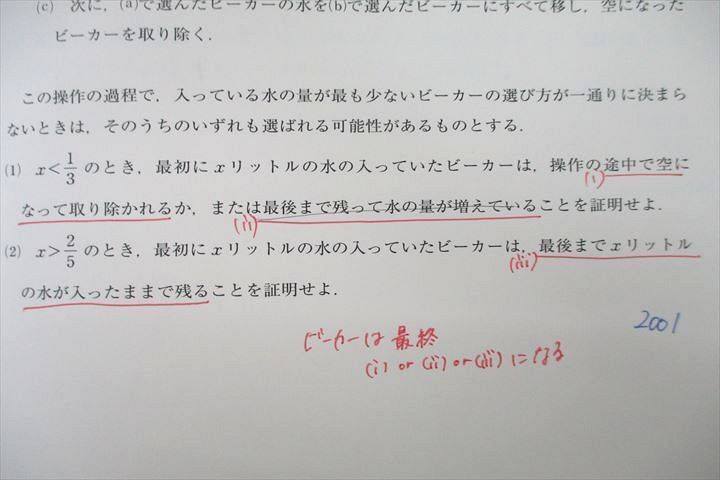 (c) 次に，(a)で選んだビーカーの水を(b)で選んだビーカーにすべて移し，空になった
ビーカーを取り除く．
この操作の過程で，入っている水の量が最も少ないビーカーの選び方が一通りに決まら
ないときは，そのうちのいずれも選ばれる可能性があるものとする．
(1) x<1/3 のとき，最初に x リットルの水の入っていたビーカーは，操作の途中で空に
(i)
なって取り除かれるか，または最後まで残って水の量が増えていることを証明せよ．
(ii)
(2) x>2/5 のとき，最初に x リットルの水の入っていたビーカーは，最後まで x リットル
(iii)
の水が入ったままで残ることを証明せよ．
2001
ビーカーは最終
(i) or (ii) or (iii) になる